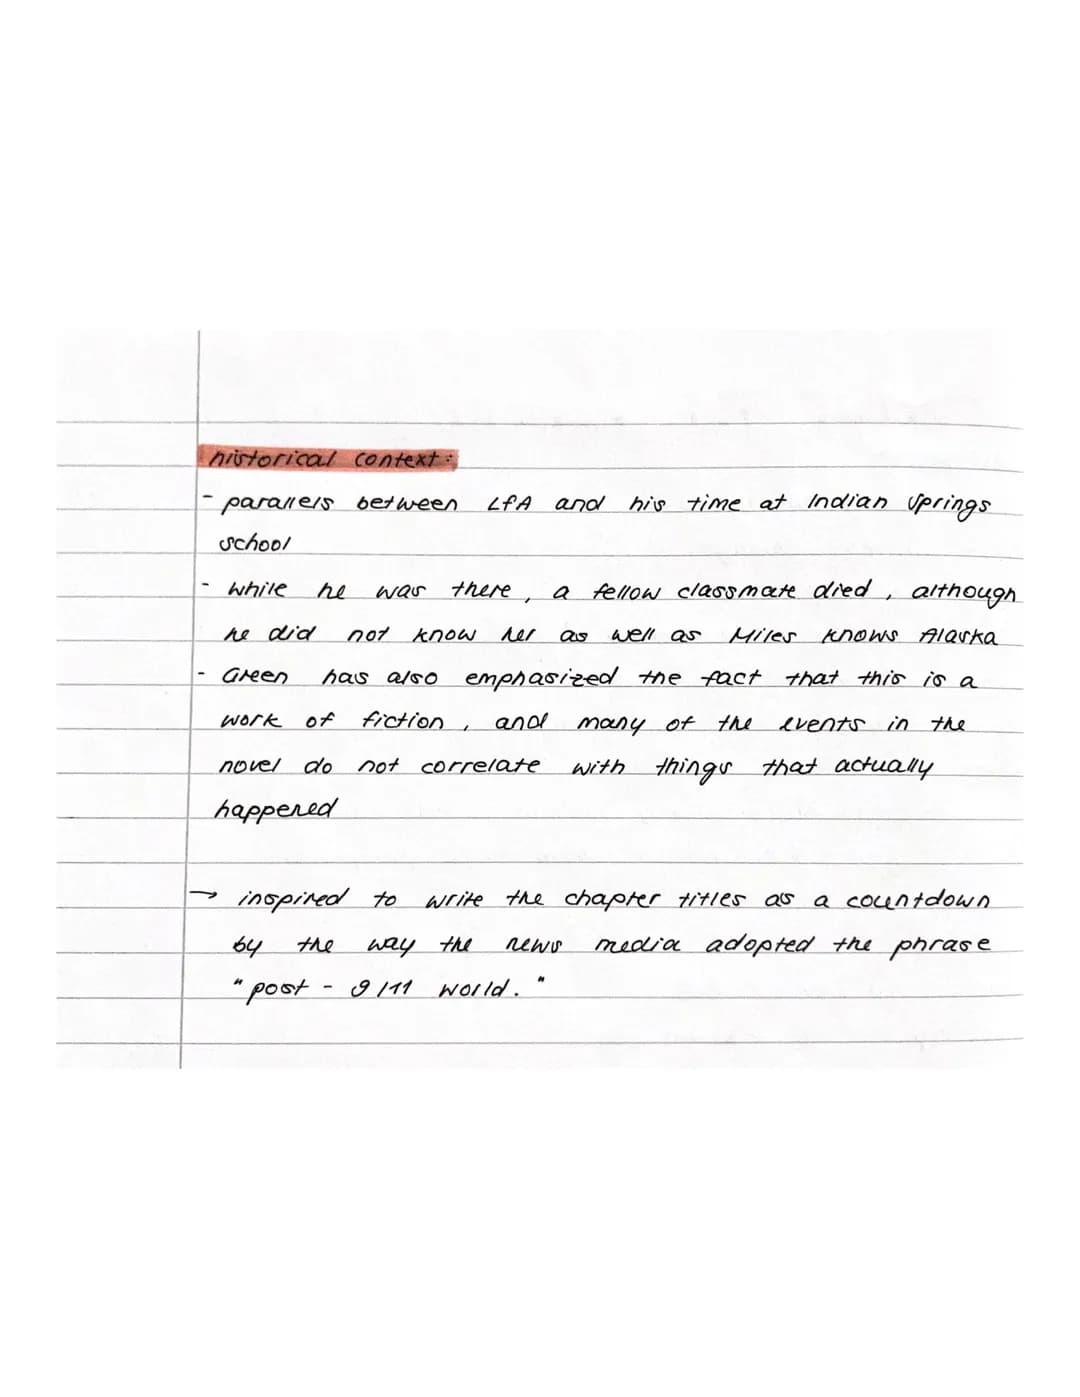 historical context:
- parallels between LfA and his time at Indian Springs
school
- while he was there, a fellow classmate died, although
he did not know her as well as Miles knows Alaska
- Green has also emphasized the fact that this is a
work of fiction, and many of the events in the
novel do not correlate with things that actually
happened
→ inspired to write the chapter titles as a countdown
by the way the news media adopted the phrase
"post - 9/11 world."